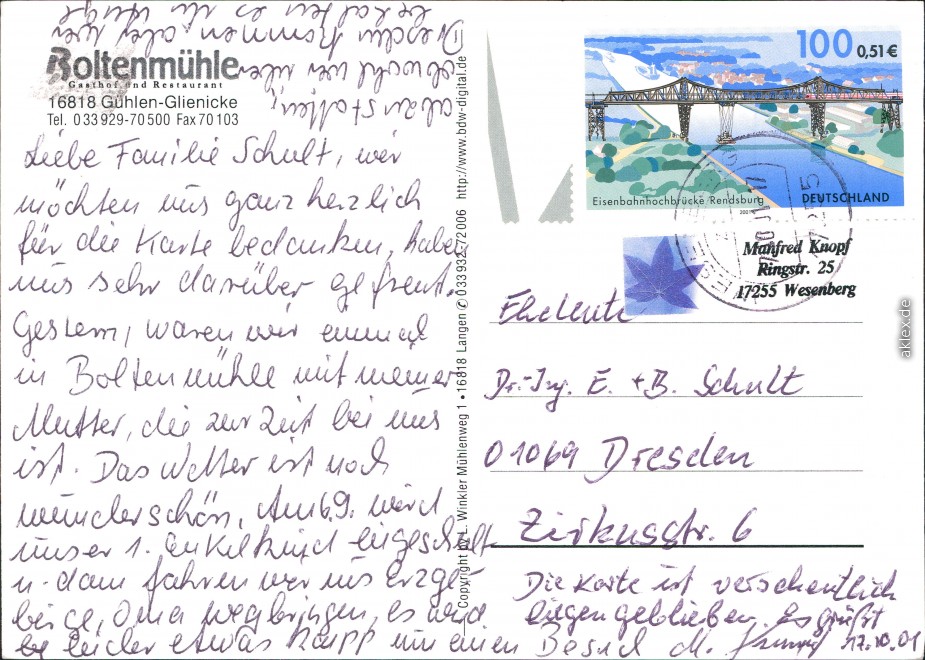 Boltenmühle
Gasthof und Restaurant
16818 Gühlen-Glienicke
Tel. 033929-70500 Fax 70103
Liebe Familie Schult, wir
möchten uns ganz herzlich
für die Karte bedanken, haben
uns sehr darüber gefreut.
Gestern, waren wir einmal
in Boltenmühle mit meiner
Mutter, die zur Zeit bei uns
ist. Das Wetter ist noch
wunderschön, Am 6.9. wird
unser 1. Enkelkind eingeschult
u. dann fahren wir ins Erzge
birge, Oma wegbringen, es wird
leider etwas knapp um einen Besuch
abzustatten,
obwohl wir über
Dresden kommen aber wir
Copyright by L. Winkler Mühlenweg 1 • 16818 Langen ✆ 033932/ /2006 http://www.bdw-digital.de
100 0,51€
Eisenbahnhochbrücke Rendsburg
DEUTSCHLAND
Manfred Knopf
Ringstr. 25
17255 Wesenberg
Eheleute
Dr.-Ing. E. + B. Schult
01069 Dresden
Zirkusstr. 6
Die Karte ist versehentlich
liegengeblieben. Es grüßt
M. 17.10.01
aklex.de